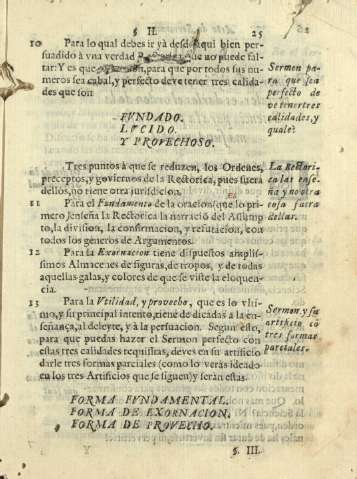 § II. 25
10 Para lo qual debes ir yà desde aqui bien per-
suadido à vna verdad que no puede fal-
tar: Y es que para que por todos sus nu-
meros sea cabal, y perfecto deve tener tres calida-
des que son
FUNDADO.
LUCIDO.
Y PROVECHOSO.
Sermon pa-
ra que sea
perfecto de
ve tener tres
calidades, y
quale?
Tres puntos à que se reduzen, los Ordenes,
preceptos, y goviernos de la Rectorica, pues fuera
dellos, no tiene otra jurisdicion.
La Rectori-
ca las ense-
ña y no otra
cosa fuera
dellas.
11 Para el Fundamento de la oracion (que es lo pri-
mero) enseña la Rectorica la narraciō del Assump-
to, la division, la confirmacion, y refutacion, con
todos los generos de Argumentos.
12 Para la Exornacion tiene dispuestos amplis-
simos Almacenes de figuras, de tropos, y de todas
aquellas galas, y colores de que se viste la eloquen-
cia.
13 Para la Vtilidad, y provecho, que es lo vlti-
mo, y su principal intento, tiene de dicadas à la en-
señança, al deleyte, y à la persuacion. Segun esto,
para que puedas hazer el Sermon perfecto con
estas tres calidades requisitas, deves en su artificio
darle tres formas parciales (como lo veràs ideado
en los tres Artificios que se siguen) y seràn estas.
Sermon, y su
artificio cō
tres formas
parciales.
FORMA FUNDAMENTAL.
FORMA DE EXORNACION.
FORMA DE PROVECHO.
§. III.